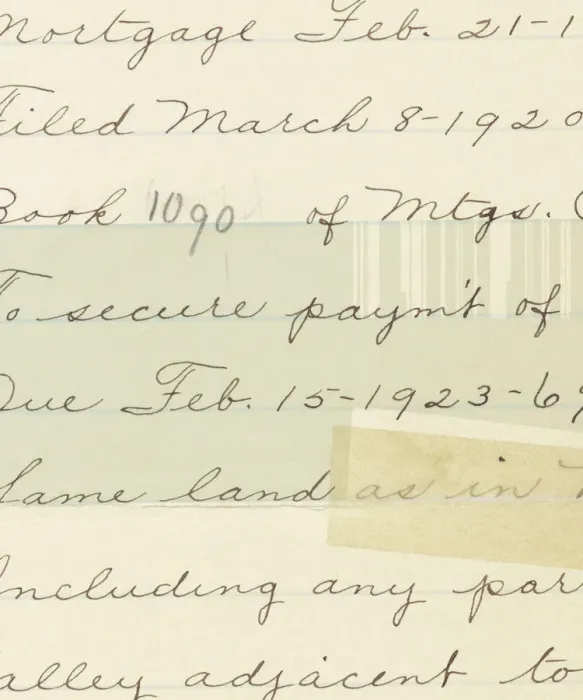 Mortgage Feb. 21-1
Filed March 8-1920
Book 1090 of Mtgs.
To secure paym't of
Due Feb. 15-1923-6%
Same land as in
Including any par
alley adjacent to